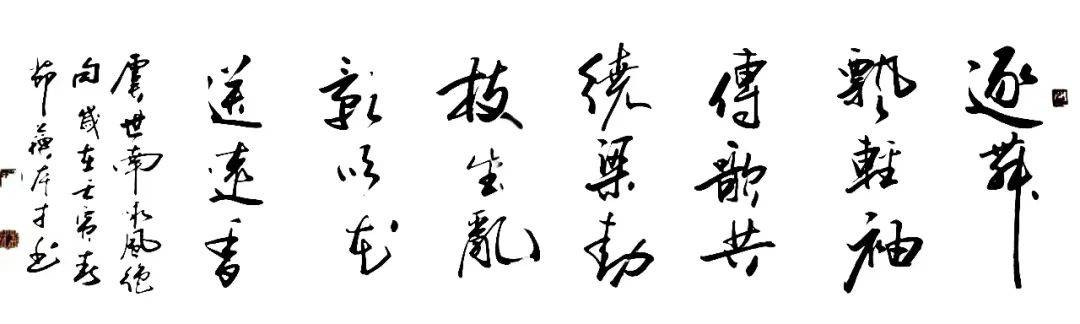 逐舞
飄輕袖
傳歌共
繞梁動
枝生亂
影吹花
送遠香
虞世南詠風絕
句歲在壬寅春
節才书